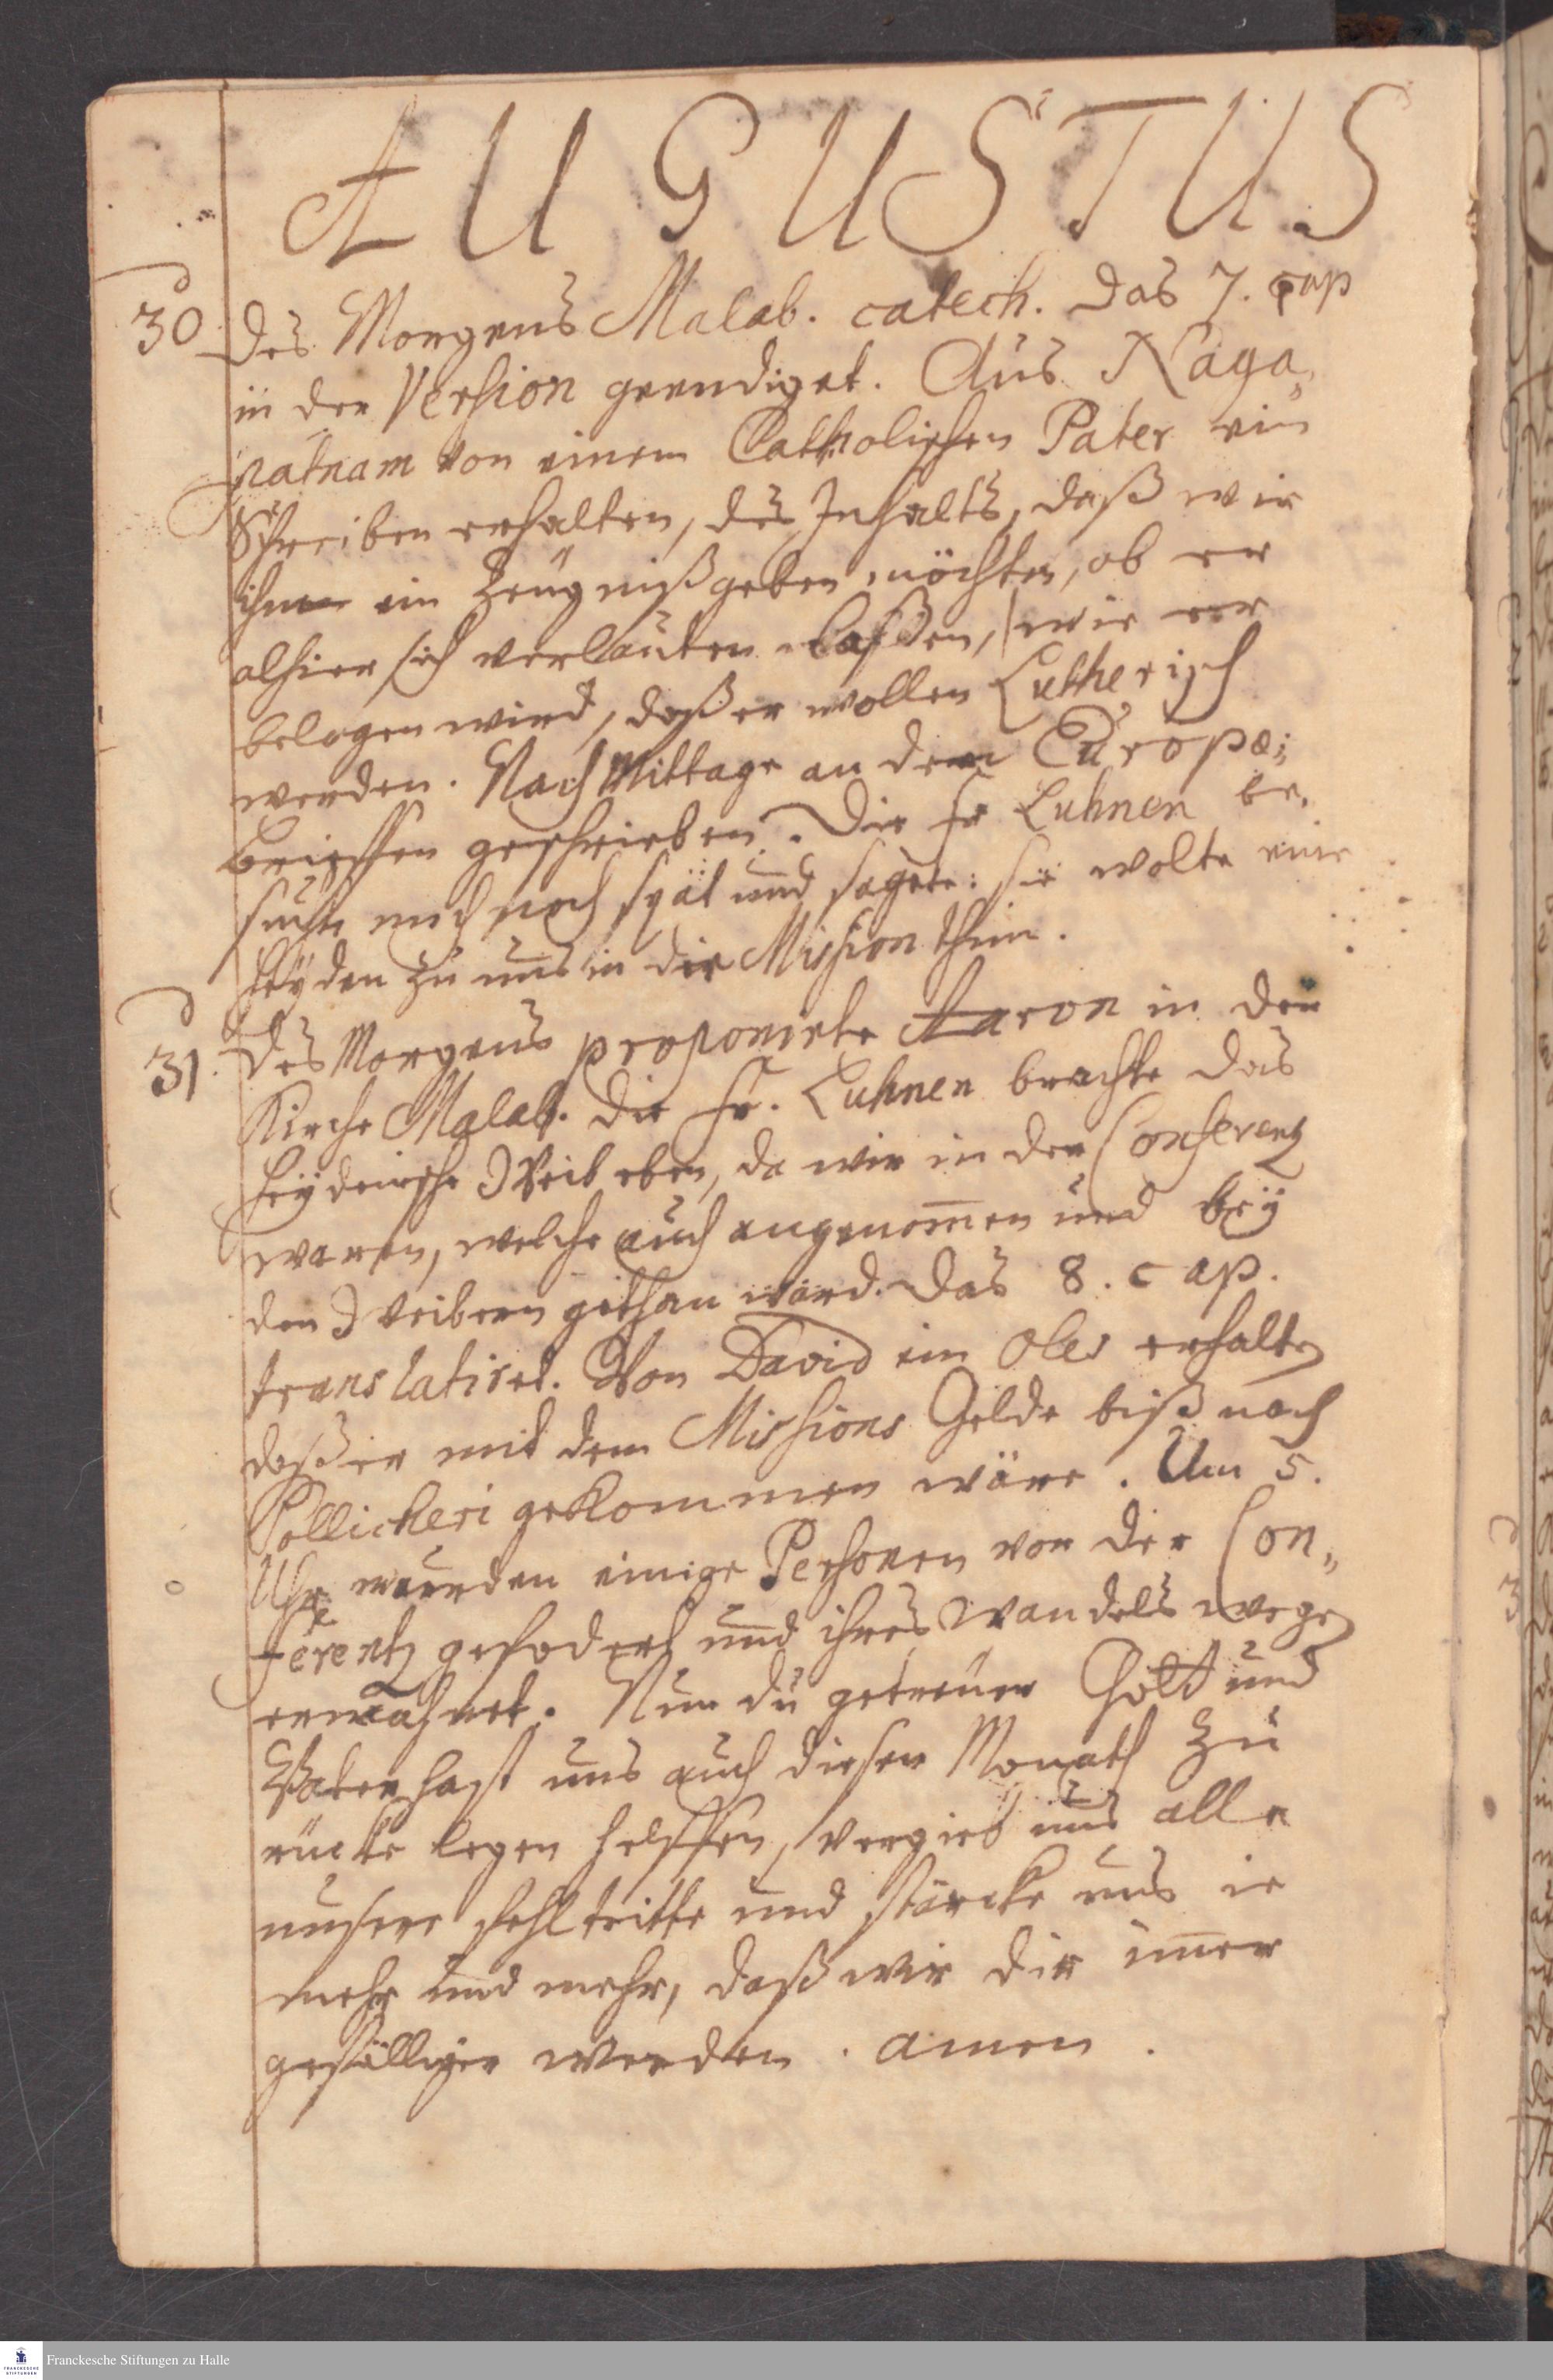 AUGUSTUS
30 Des Morgens Malab. catech. Das 7. cap
in der Version geendiget. Aus Naga„
patnam von einem Catholischen Pater ein
Schreiben erhalten, des Inhalts, daß wir
ihm ein Zeugniß geben möchten, ob er
alhier sich verlauten laßen, wie er
belogen wird, daß er wollen Lutherisch
werden. Nach Mittage an den Europæi:
Brieffen geschrieben. Die Fr Luhnen be„
suchte mich noch spät und sagete: sie wolte eine
Heÿdin zu uns in die Mission thun.
31. Des Morgens proponirte Aaron in der
Kirche Malab. Die Fr. Luhnen brachte das
heÿdnische Weib eben, da wir in der Conferentz
waren, welche auch angenom̄en und beÿ
den Weibern gethan ward. Das 8. cap.
translatiret. Von David ein Oles erhalten
daß er mit dem Missions Gelde biß nach
Pollicheri gekommen wäre. Um 5.
Uhr wurden einige Personen vor der Con„
ferentz gefodert und ihres Wandels wegen
ermahnet. Nun du getreuer Gott und
Vater hast uns auch diesen Monath zu
rücke legen helffen, vergieb uns alle
unsere fehltritte und stärcke uns ie
mehr und mehr, daß wir dir im̄er
gefälliger werden. Amen.
Franckesche Stiftungen zu Halle
FRANCKESCHE
STIFTUNGEN